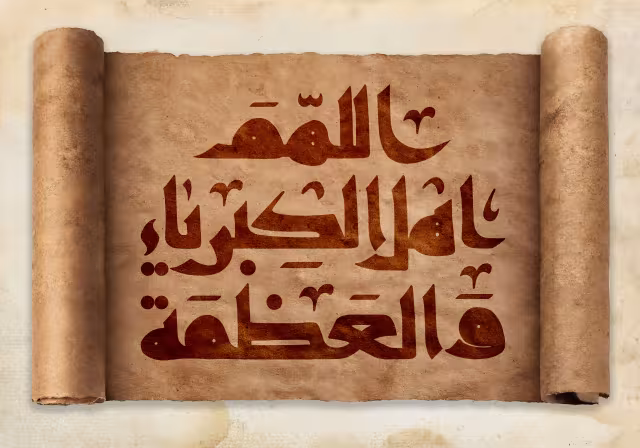 اللّهمَ
أهل الكبرياء
والعظمة